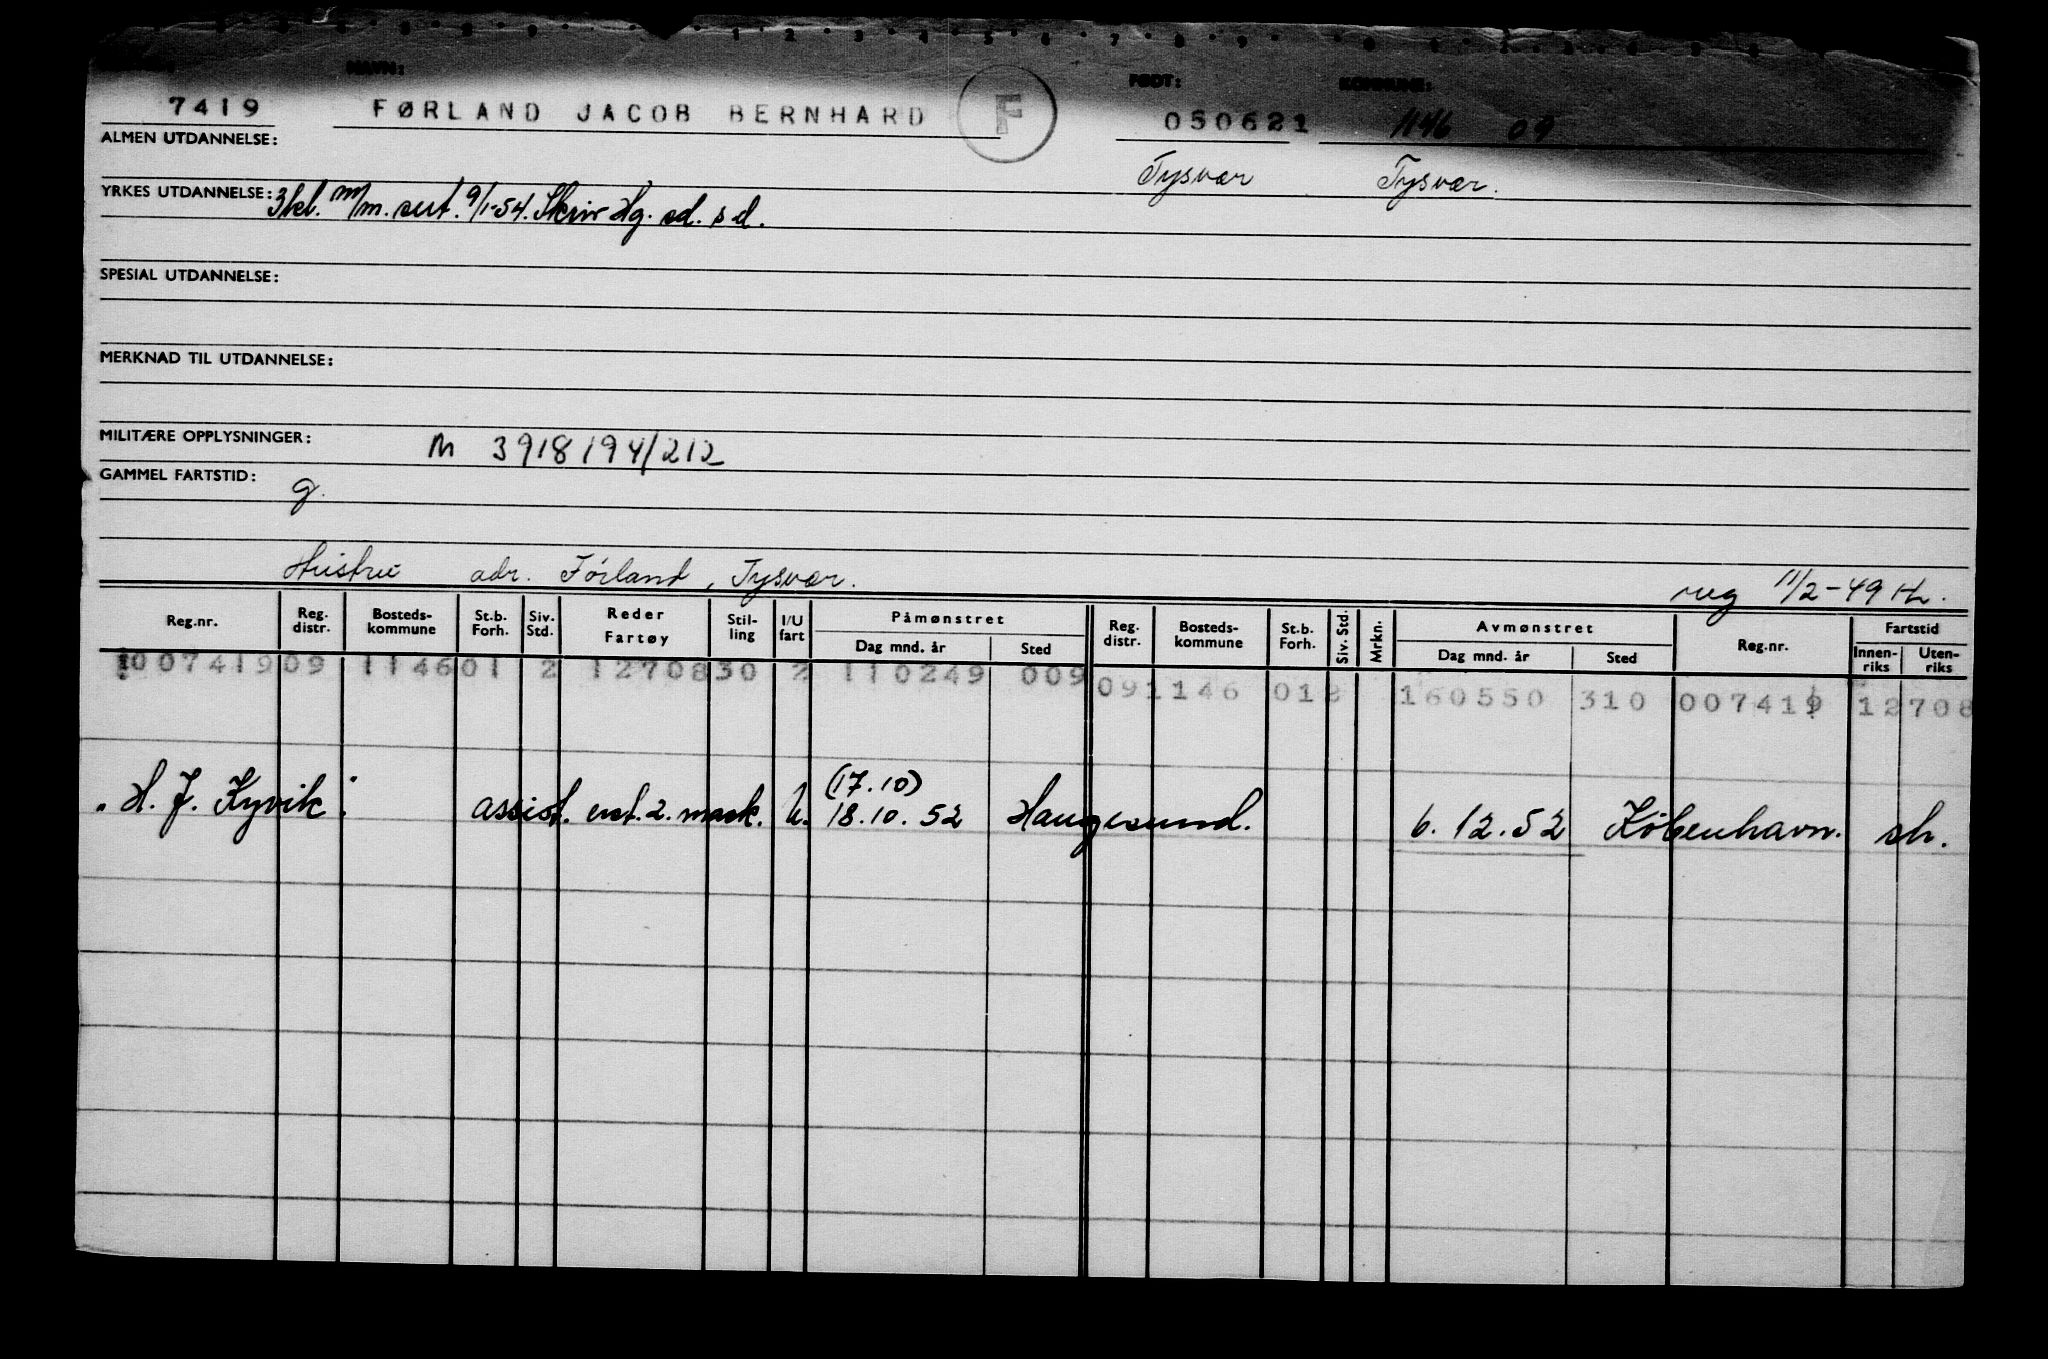 NAVN: FØDT: KOMMUNE:
7419 FØRLAND JACOB BERNHARD F 050621 1146 09
ALMEN UTDANNELSE: Tysvær Tysvær.
YRKES UTDANNELSE: 3kl. m/m. sert. 9/1-54. Skriv Hg. sd. s d.
SPESIAL UTDANNELSE:
MERKNAD TIL UTDANNELSE:
MILITÆRE OPPLYSNINGER: M 3918194/212
GAMMEL FARTSTID: g.
Hustru adr. Førland, Tysvær. reg 11/2-49
Reg.nr. Reg. distr. Bosteds-kommune St.b. Forh. Siv. Std. Reder Fartøy Stil-ling I/U fart Påmønstret Dag mnd. år Sted Reg. distr. Bosteds-kommune St.b. Forh. Siv. Std. Mrkn. Avmønstret Dag mnd. år Sted Reg.nr. Fartstid Innen-riks Uten-riks
007419 09 1146 01 2 12708 30 2 110249 009
09 1146 01 2 160550 310 007419 12708
(17.10)
" H. J. Kyvik". assist. erst. 2. mask. U. 18.10.52 Haugesund. 6.12.52 København. sh.